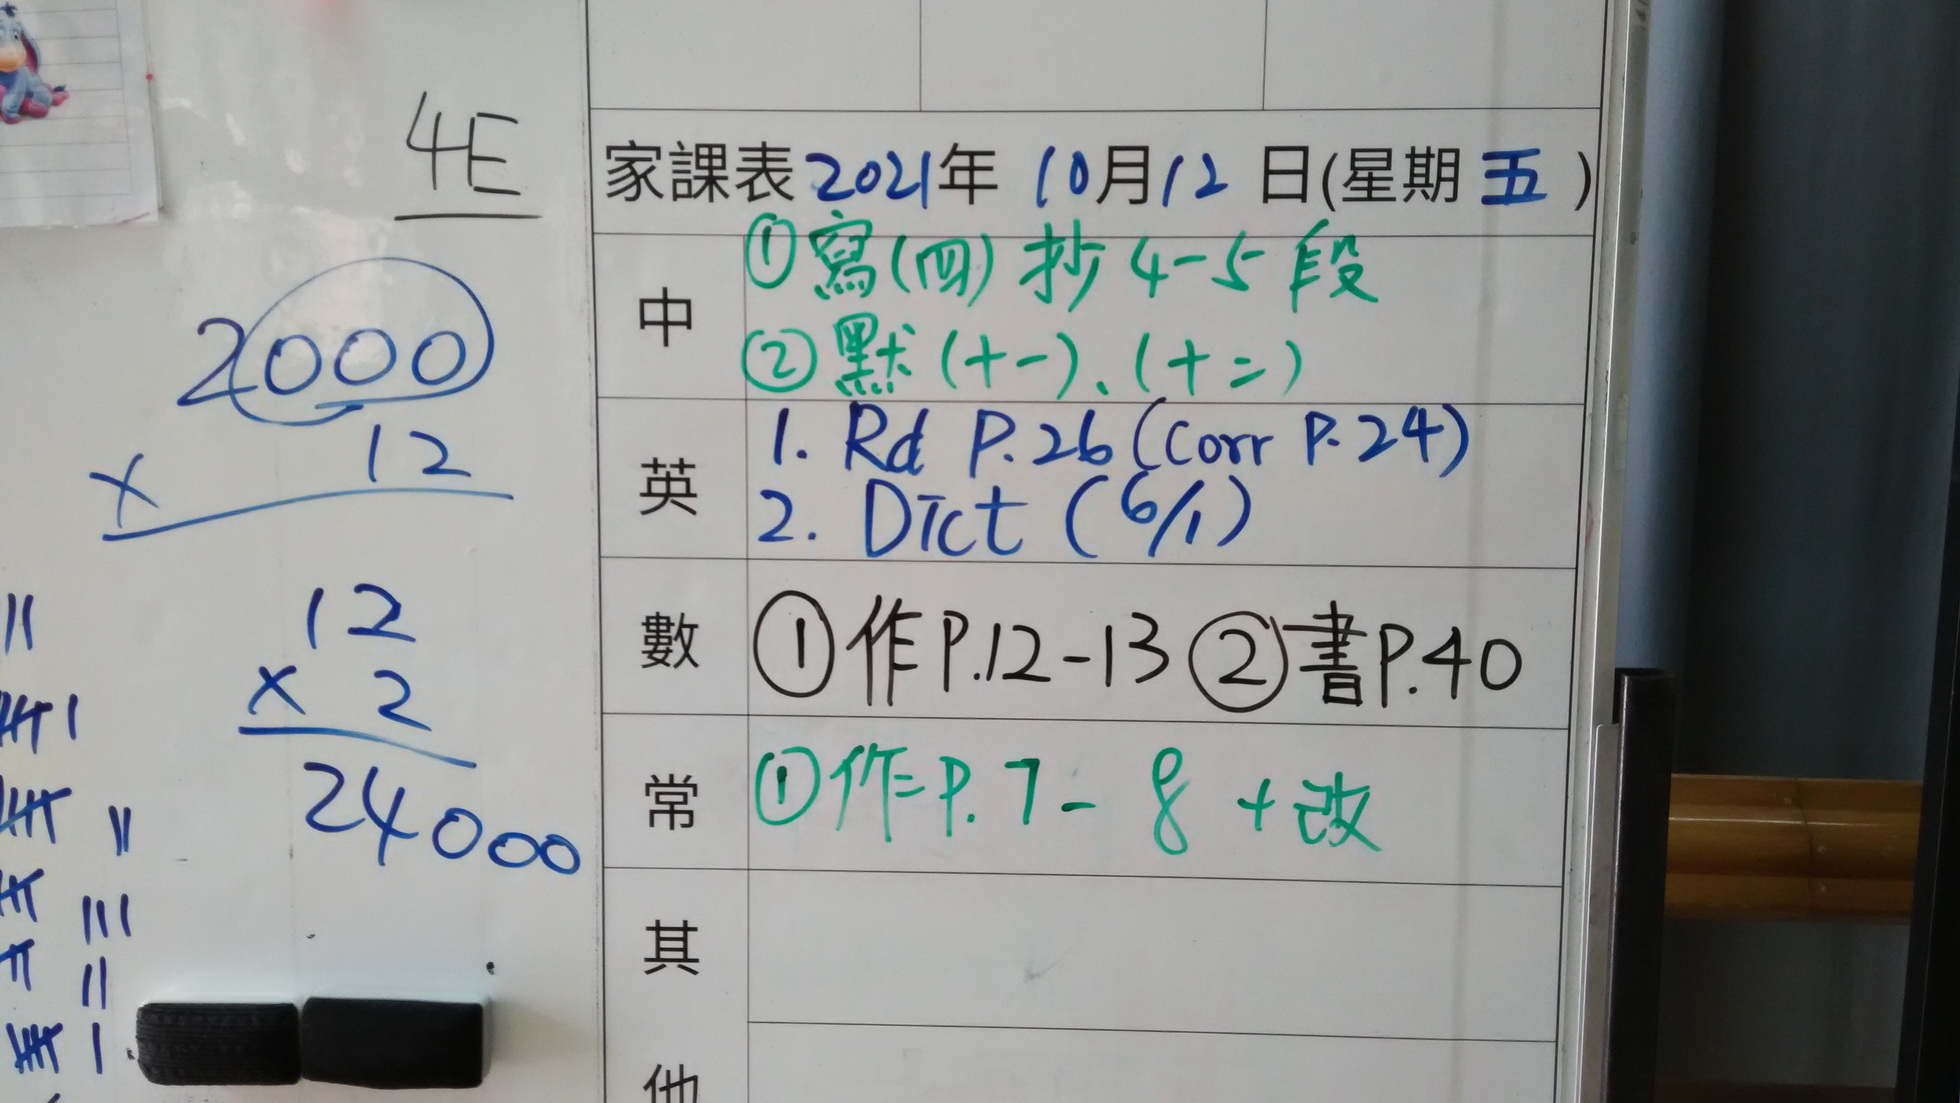 4E
2000
x 12
12
x 2
24000
家課表2021年 10月12日(星期五)
中
①寫(四)抄4-5段
②默(十一)、(十二)
英
1. Rd P.26(Corr P.24)
2. Dict (6/1)
數
①作P.12-13 ②書P.40
常
①作=P.7-8+改
其
他